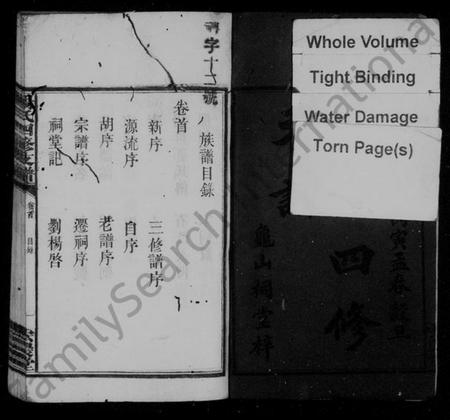 Whole Volume
Tight Binding
Water Damage
Torn Page(s)
寅孟春穀旦
四修
龜山祠堂梓
字十二號
族譜目錄
卷首
新序
三修譜序
源流序
自序
胡序
老譜序
宗譜序
遷祠序
祠堂記
劉楊啓
四修支譜
卷首
目錄
FamilySearch International